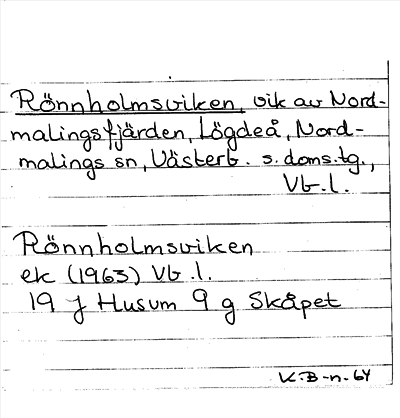 Rönnholmsviken, vik av Nord-
malingsfjärden, Lögdeå, Nord-
malings sn, Västerb. s. doms.tg.,
Vb.l.
Rönnholmsviken
ek (1963) Vb.l.
19 J Husum 9 g Skåpet
K.B-n. 64